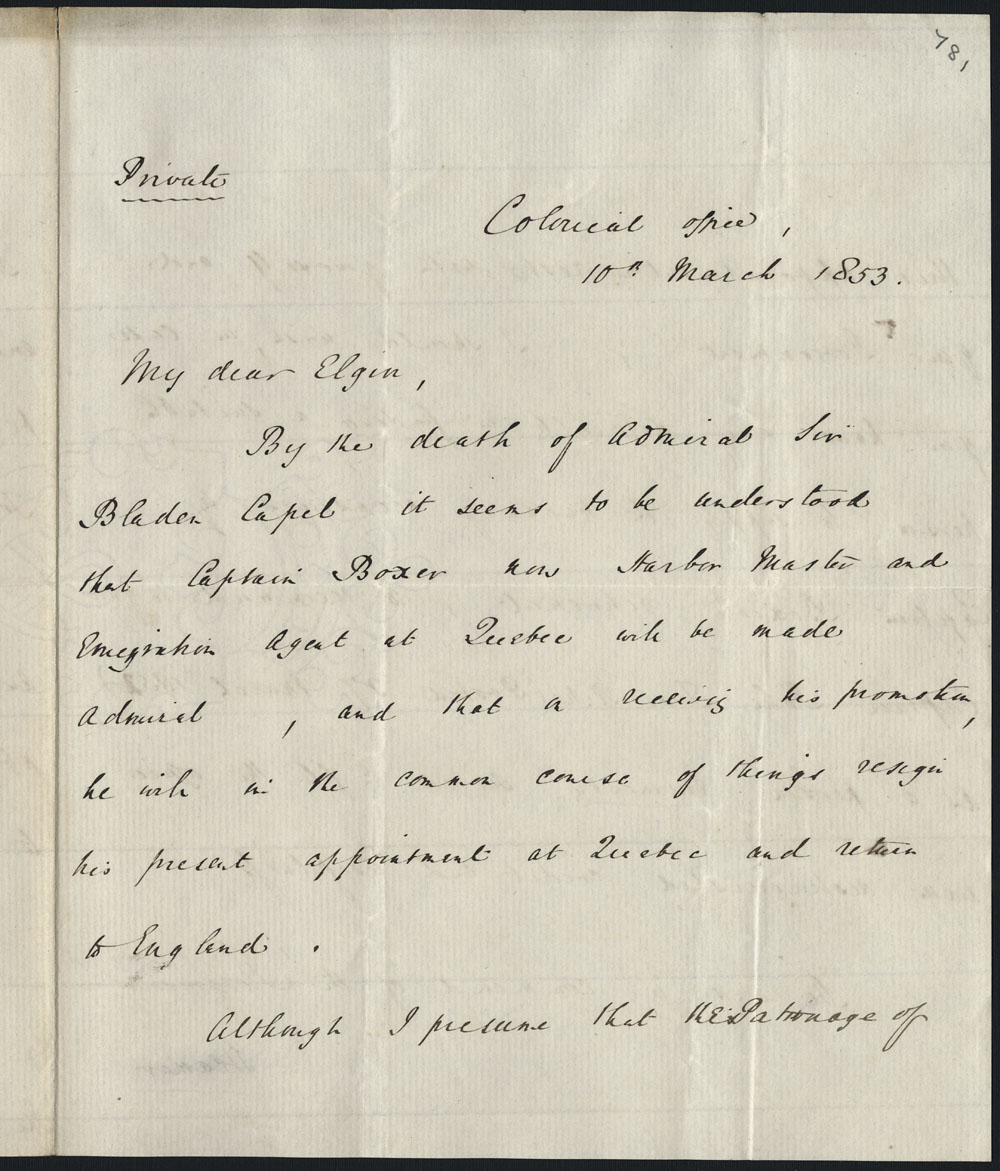 781
Private
Colonial office,
10th March 1853.
My dear Elgin,
By the death of Admiral Sir
Bladen Capel it seems to be understood
that Captain Boxer now Harbor Master and
Emigration Agent at Quebec will be made
Admiral, and that on receiving his promotion,
he will in the common course of things resign
his present appointment at Quebec and return
to England.
Although I presume that the Patronage of